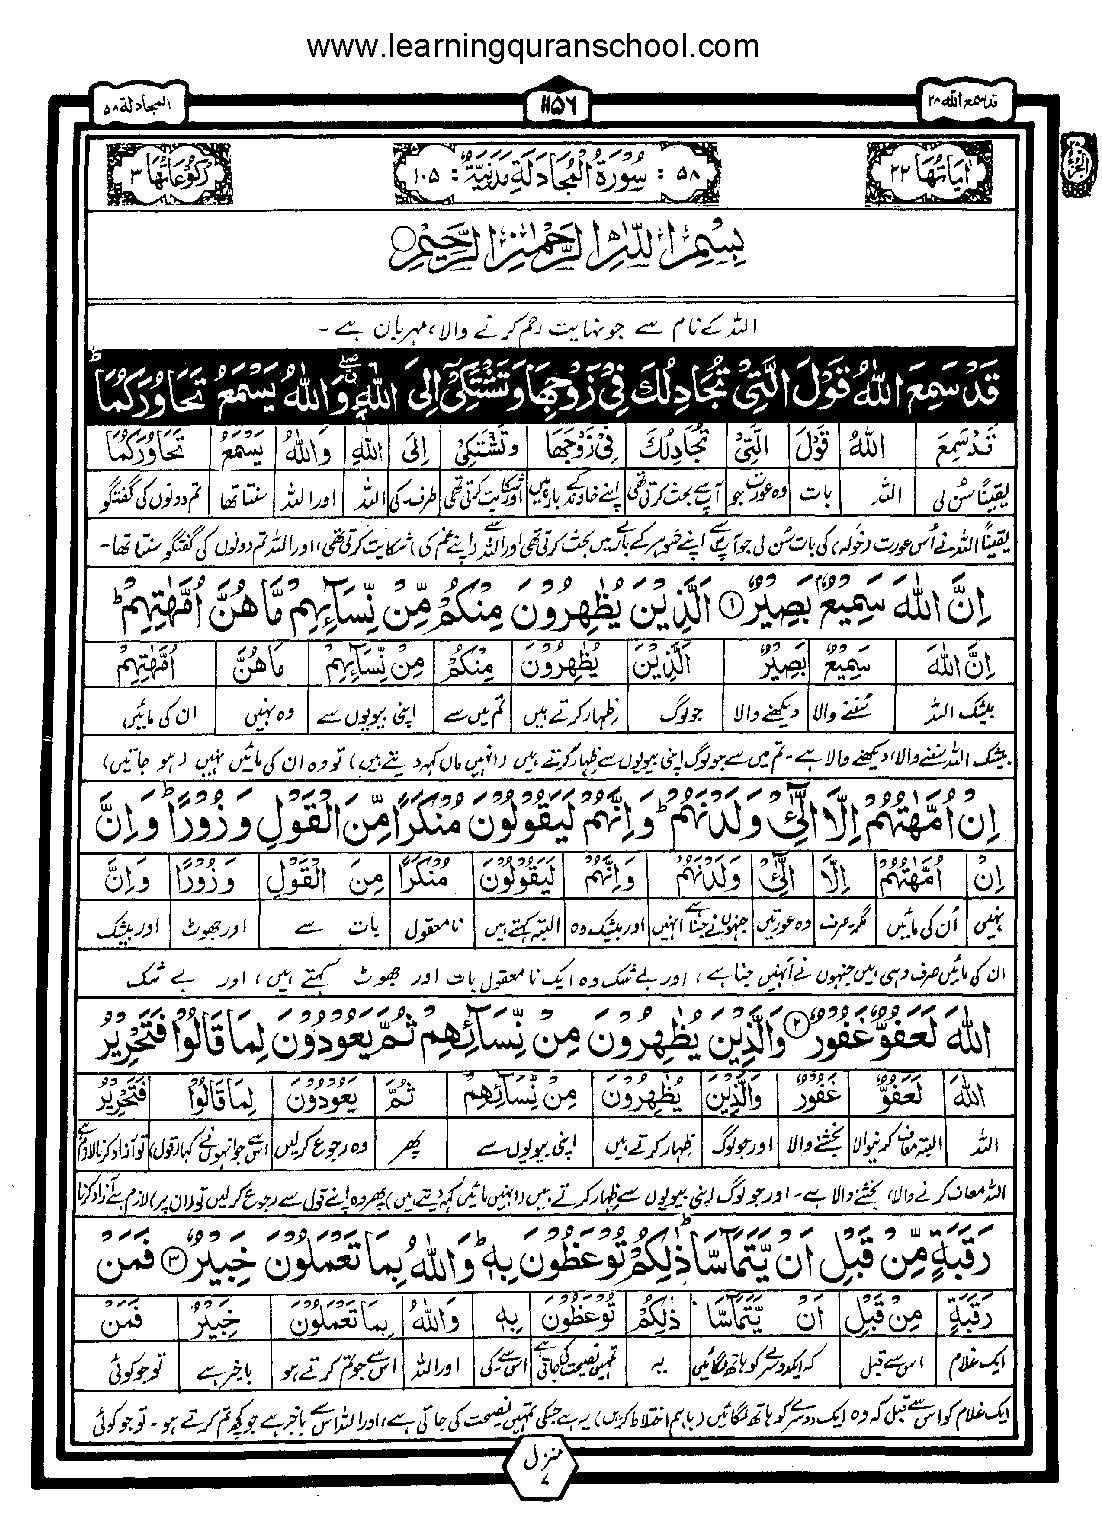 www.learningquranschool.com
قد سمع الله ۲۸
۱۱۵۶
المجادلة ۵۸
اٰيَاتُهَا ۲۲
۵۸ : سُوْرَةُ الْمُجَادَلَةِ مَدَنِيَّةٌ : ۱۰۵
رُكُوْعَاتُهَا ۳
بِسْمِ اللّٰهِ الرَّحْمٰنِ الرَّحِيْمِ
اللہ کے نام سے جو نہایت رحم کرنے والا، مہربان ہے ۔
قَدْ سَمِعَ اللّٰهُ قَوْلَ الَّتِيْ تُجَادِلُكَ فِيْ زَوْجِهَا وَتَشْتَكِيْٓ اِلَى اللّٰهِ ۖ وَاللّٰهُ يَسْمَعُ تَحَاوُرَكُمَا ؕ
قَدْ سَمِعَ اللّٰهُ قَوْلَ الَّتِيْ تُجَادِلُكَ فِيْ زَوْجِهَا وَتَشْتَكِيْ اِلَى اللّٰهِ وَاللّٰهُ يَسْمَعُ تَحَاوُرَكُمَا
یقیناً سُن لی اللہ بات وہ عورت جو آپ سے بحث کرتی تھی اپنے خاوند کے بارے میں اور شکایت کرتی تھی طرف۔ کی اللہ اور اللہ سنتا تھا تم دونوں کی گفتگو
یقیناً اللہ نے اُس عورت (خولہ) کی بات سُن لی جو آپ سے اپنے شوہر کے بارے میں بحث کرتی تھی اور اللہ سے اپنے غم کی شکایت کرتی تھی، اور اللہ تم دونوں کی گفتگو سنتا تھا۔
اِنَّ اللّٰهَ سَمِيْعٌۢ بَصِيْرٌ ۱ اَلَّذِيْنَ يُظٰهِرُوْنَ مِنْكُمْ مِّنْ نِّسَآئِهِمْ مَّا هُنَّ اُمَّهٰتِهِمْ ؕ
اِنَّ اللّٰهَ سَمِيْعٌ بَصِيْرٌ اَلَّذِيْنَ يُظٰهِرُوْنَ مِنْكُمْ مِنْ نِّسَآئِهِمْ مَا هُنَّ اُمَّهٰتِهِمْ
بیشک اللہ سُننے والا دیکھنے والا جو لوگ ظہار کرتے ہیں تم میں سے اپنی بیویوں سے وہ نہیں ان کی مائیں
بیشک اللہ سننے والا، دیکھنے والا ہے۔ تم میں سے جو لوگ اپنی بیویوں سے ظہار کرتے ہیں (انہیں ماں کہہ دیتے ہیں) تو وہ ان کی مائیں نہیں (ہو جاتیں)
اِنْ اُمَّهٰتُهُمْ اِلَّا الّٰٓئِيْ وَلَدْنَهُمْ ؕ وَاِنَّهُمْ لَيَقُوْلُوْنَ مُنْكَرًا مِّنَ الْقَوْلِ وَزُوْرًا ؕ وَاِنَّ
اِنْ اُمَّهٰتُهُمْ اِلَّا الّٰٓئِيْ وَلَدْنَهُمْ وَاِنَّهُمْ لَيَقُوْلُوْنَ مُنْكَرًا مِنَ الْقَوْلِ وَزُوْرًا وَاِنَّ
نہیں اُن کی مائیں مگر صرف وہ عورتیں جنہوں نے جنا ہے انہیں اور بیشک وہ البتہ کہتے ہیں نامعقول بات سے اور جھوٹ اور بیشک
ان کی مائیں صرف وہی ہیں جنہوں نے اُنہیں جنا ہے، اور بے شک وہ ایک نامعقول بات اور جھوٹ کہتے ہیں، اور بے شک
اللّٰهَ لَعَفُوٌّ غَفُوْرٌ ۲ وَالَّذِيْنَ يُظٰهِرُوْنَ مِنْ نِّسَآئِهِمْ ثُمَّ يَعُوْدُوْنَ لِمَا قَالُوْا فَتَحْرِيْرُ
اللّٰهَ لَعَفُوٌّ غَفُوْرٌ وَالَّذِيْنَ يُظٰهِرُوْنَ مِنْ نِّسَآئِهِمْ ثُمَّ يَعُوْدُوْنَ لِمَا قَالُوْا فَتَحْرِيْرُ
اللہ البتہ معاف کرنیوالا بخشنے والا اور جو لوگ ظہار کرتے ہیں اپنی بیویوں سے پھر وہ رجوع کرلیں اس سے جو انہوں نے کہا (قول) تو آزاد کرنا لازم ہے
اللہ معاف کرنے والا، بخشنے والا ہے۔ اور جو لوگ اپنی بیویوں سے ظہار کرتے ہیں (انہیں مائیں کہہ دیتے ہیں) پھر وہ اپنے قول سے رجوع کرلیں تو (ان پر) لازم ہے آزاد کرنا
رَقَبَةٍ مِّنْ قَبْلِ اَنْ يَّتَمَآسَّا ؕ ذٰلِكُمْ تُوْعَظُوْنَ بِهٖ ؕ وَاللّٰهُ بِمَا تَعْمَلُوْنَ خَبِيْرٌ ۳ فَمَنْ
رَقَبَةٍ مِنْ قَبْلِ اَنْ يَّتَمَآسَّا ذٰلِكُمْ تُوْعَظُوْنَ بِهٖ وَاللّٰهُ بِمَا تَعْمَلُوْنَ خَبِيْرٌ فَمَنْ
ایک غلام اس سے قبل کہ ایک دوسرے کو ہاتھ لگائیں یہ تمہیں نصیحت کی جاتی ہے اس سے۔ کی اور اللہ اس سے جو تم کرتے ہو باخبر ہے تو جو کوئی
ایک غلام کو اس سے قبل کہ وہ ایک دوسرے کو ہاتھ لگائیں (باہم اختلاط کریں) یہ ہے جس کی تمہیں نصیحت کی جاتی ہے، اور اللہ اس سے باخبر ہے جو کچھ تم کرتے ہو۔ تو جو کوئی
منزل ۷